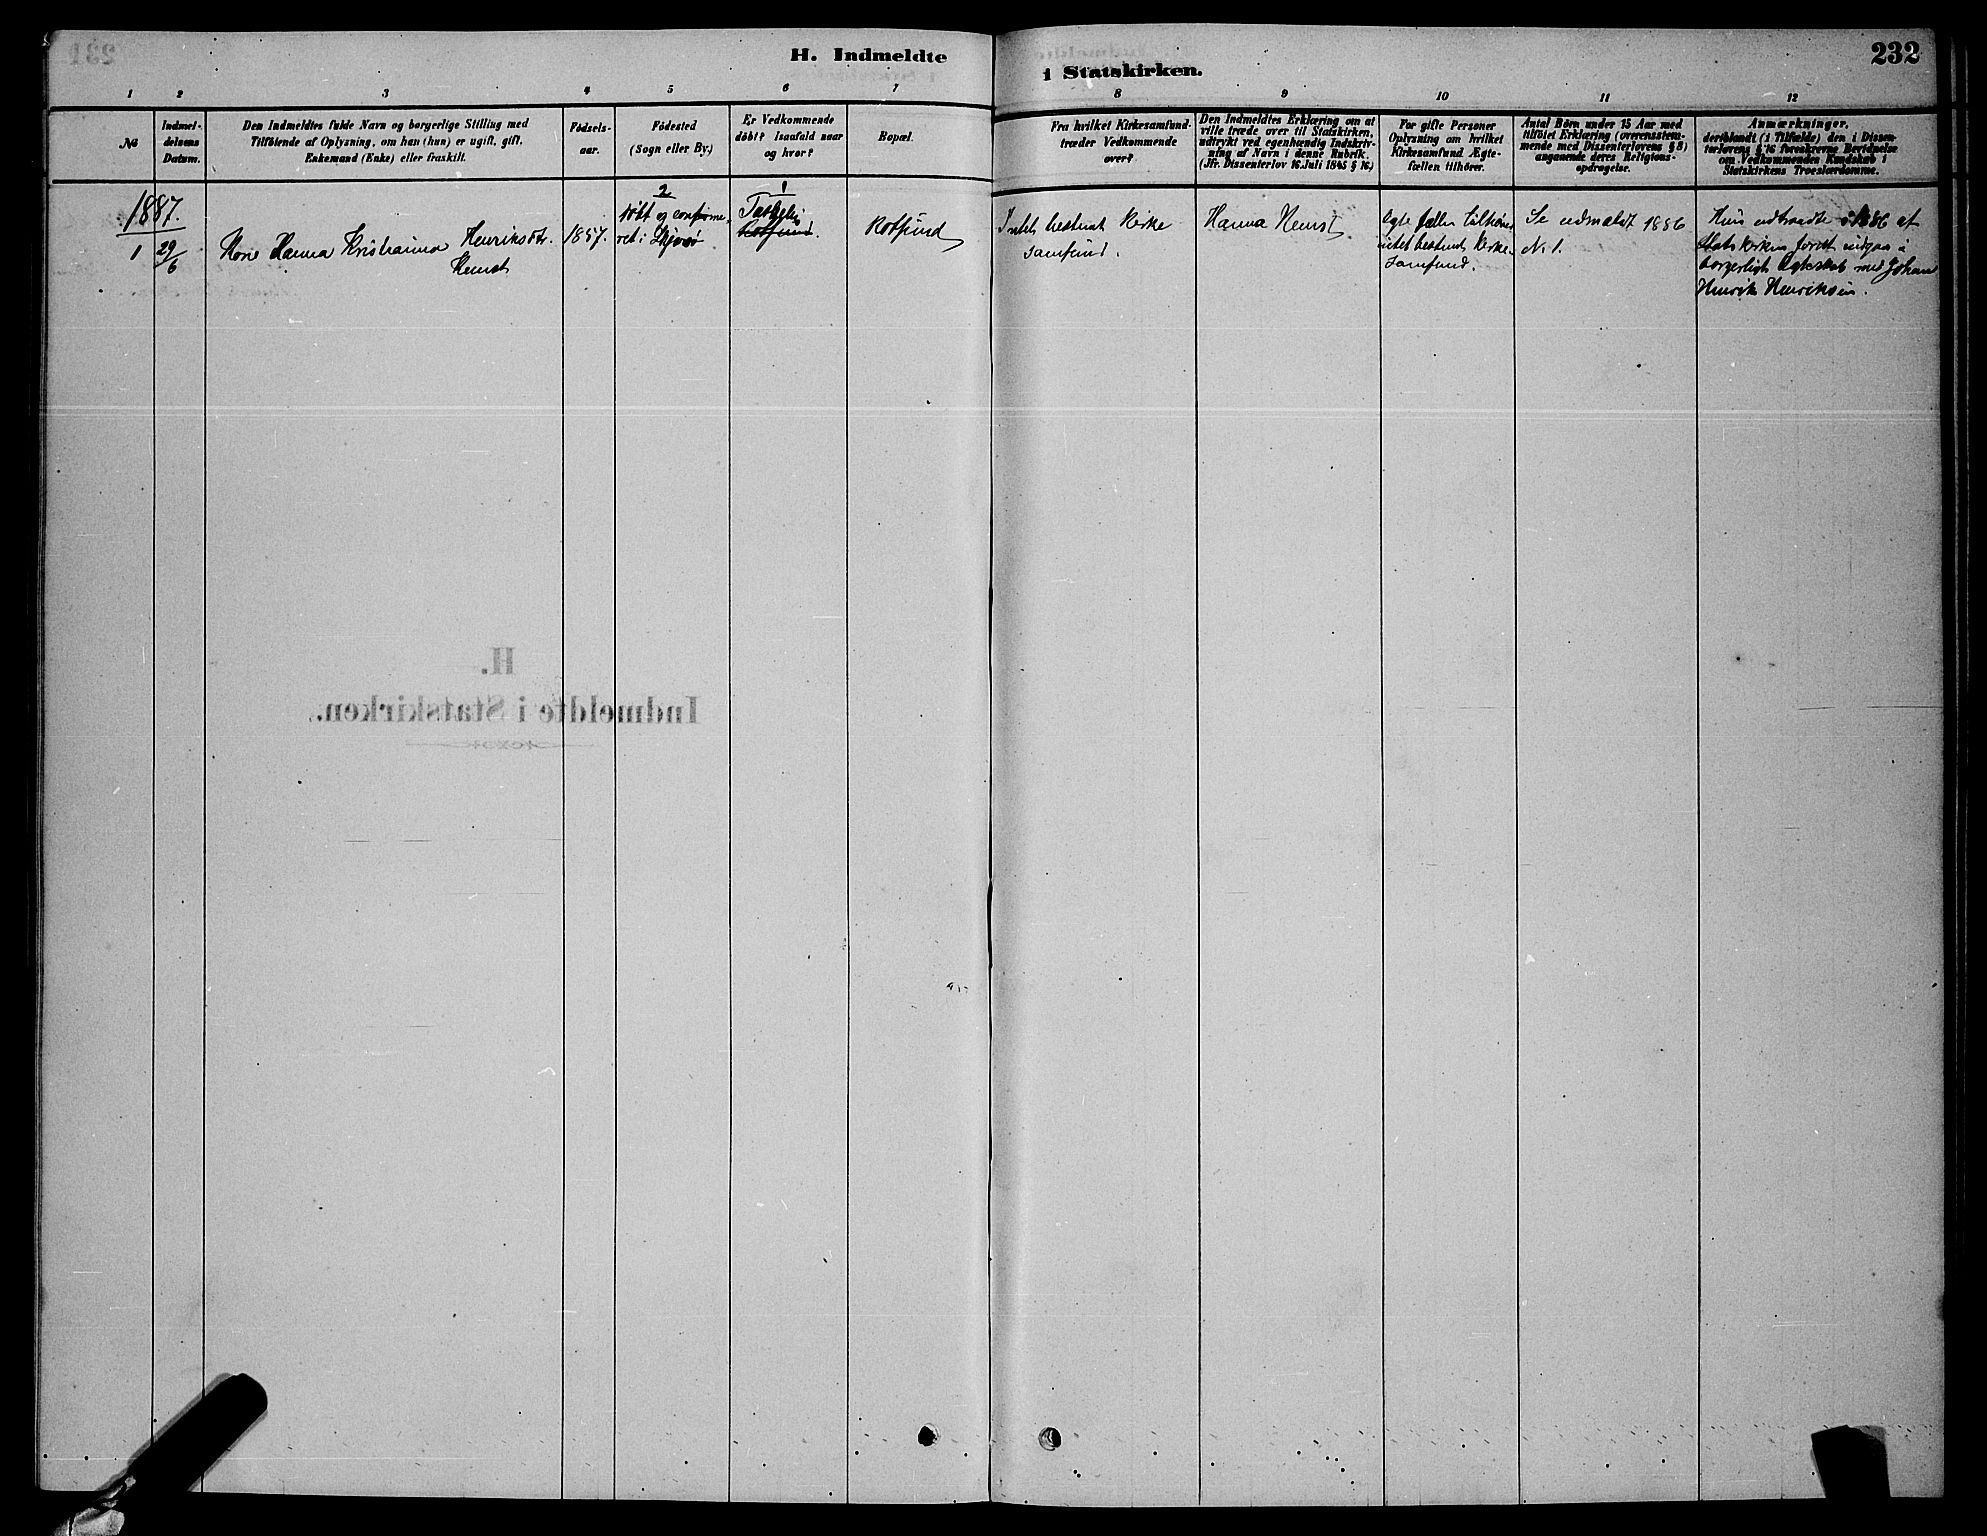 H. Indmeldte
i Statskirken.
232
1 2 3 4 5 6 7 8 9 10 11 12
No
Indmel-
delsens
Datum.
Den Indmeldtes fulde Navn og borgerlige Stilling med
Tilföiende af Oplysning, om han (hun) er ugift, gift,
Enkemand (Enke) eller fraskilt.
Födsels-
aar.
Födested
(Sogn eller By.)
Er Vedkommende
döbt? Isaafald naar
og hvor?
Bopæl.
Fra hvilket Kirkesamfund
træder Vedkommende
over?
Den Indmeldtes Erklæring om at
ville træde over til Statskirken,
udtrykt ved egenhændig Indskriv-
ning af Navn i denne Rubrik.
(Jfr. Dissenterlov 16 Juli 1845 § 16.)
For gifte Personer
Oplysning om hvilket
Kirkesamfund Ægte-
fællen tilhörer.
Antal Børn under 15 Aar med
tilföiet Erklæring (overensstem-
mende med Dissenterlovens § 8)
angaaende deres Religions-
opdragelse.
Anmærkninger,
deriblandt (i Tilfælde) den i Dissen-
terlovens § 16 foreskrevne Betidnelse
om Vedkommendes Kundskab i
Statskirkens Troeslærdomme.
1887.
1
29/6
Kone Hanna Kristianna Henriksdtr.
1857.
2
født og confirme-
ret i Skjervø
1
Rotsund.
Rotsund
Intet bestemt Kirke
samfund.
Hanna
Egtefællen tilhører
intet bestemt Kirke-
samfund.
Se udmeldt 1886
N. 1.
Hun udtraadte i 1886 af
Statskirken foratt indgaa i
borgerligt Egteskab med Johan
Henrik Henriksen.
H.
Indmeldte i Statskirken.
231